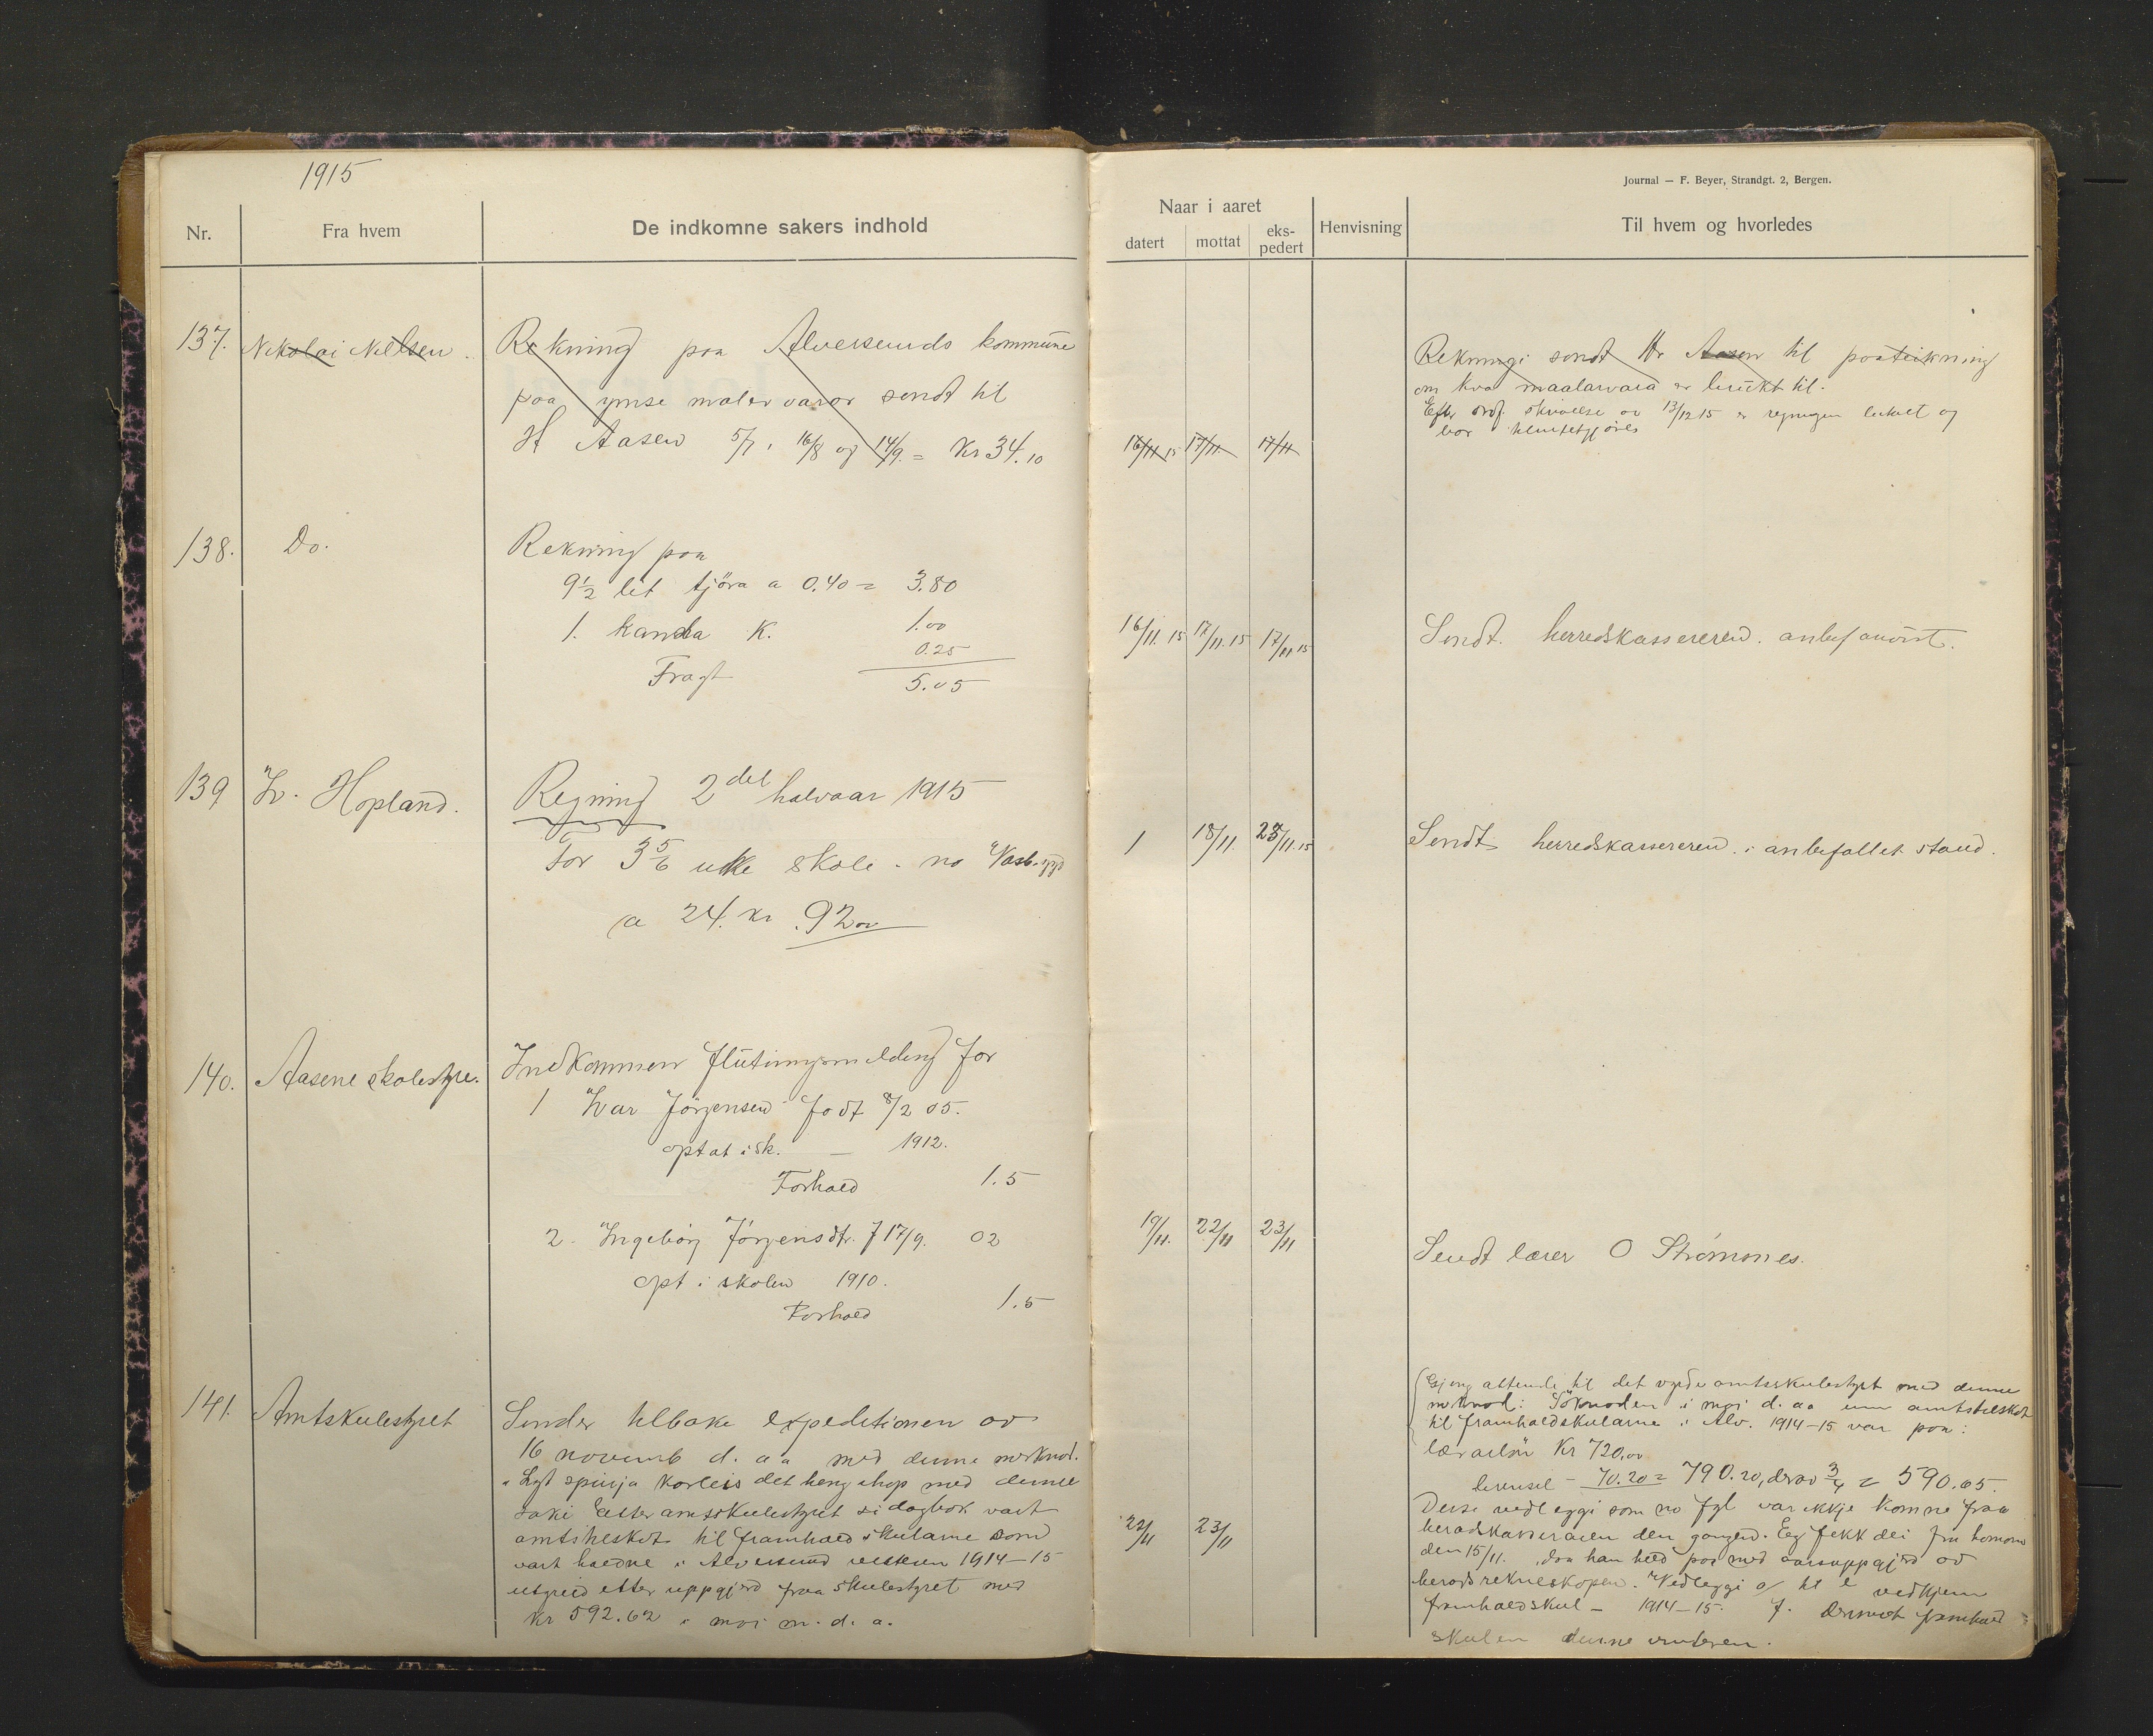 1915
Nr.
Fra hvem
De indkomne sakers indhold
137.
Nikolai Nilsen.
Rekning paa Alversunds kommune
paa ymse malervaror sendt til
H Aasen 5/7, 16/8 og 14/9. = Kr 34.10
138.
Do.
Rekning paa
9½ lit tjöra a 0.40 = 3.80
1. kanna K. 1.00
Fragt 0.25
5.05
139
Iv. Hopland.
Regning 2det halvaar 1915
For 3 5/6 uke skole
a 24. kr. 92 00
140.
Aasene skolestyre.
Indkommen flutningsmelding for
1 Ivar Jörgensen fodt 8/2 05.
optat i sk. — 1912.
Forhold 1.5
2. Ingebörg Jörgensdtr. f 17/9. 02
opt i skolen 1910.
Forhold 1.5
141.
Amtskulestyret
Sender tilbake expeditionen av
16 novemb d. aa med denne merknad.
"Lyt spyrja korleis det heng ihop med denne
saki Etter amtsskulestyret si dagbok vart
amtstilskot til framhaldskularne som
vart haldne i Alversund vetteren 1914–15
utgreid etter uppgjerd fraa skulestyret med
kr 592.62 i mai m. d. a.
Journal — F. Beyer, Strandgt. 2, Bergen.
Naar i aaret
datert
mottat
eks-
pedert
Henvisning
Til hvem og hvorledes
16/11 15 17/11 17/11
Rekningi sendt Hr Aasen til paateikning
om kva maalarvara er brukt til.
Efter skrivelse av 13/12 15 er regningen og
bör
16/11. 15 17/11. 15 17/11 15
Sendt. herredskassereren. anbef anvist.
1 18/11. 23/11. 15
Sendt herredskassereren. i anbefallet stand.
19/11. 22/11 23/11
Sendt lærer O Strömsnes.
22/11 23/11
Gjeng attende til det vyrde amtsskulestyret med denne
merknad: Söknaden i mai d. aa um amtstilskot
til framhaldskularne i Alv. 1914–15 var paa:
lærarlön Kr 720,00
brensel – 70.20 = 790.20, derav 3/4 = 590.65.
Desse vedleggi som no fyl var ikkje komne fraa
heradskasseraren den gangen. Eg fekk dei fraa honom
den 15/11. daa han heldt paa med aarsuppgjerd av
heradsrekneskapen. Vedleggi a/ til e vedkjem
framhaldskul – 1914–15. f. framhald
skulen denne vinteren.